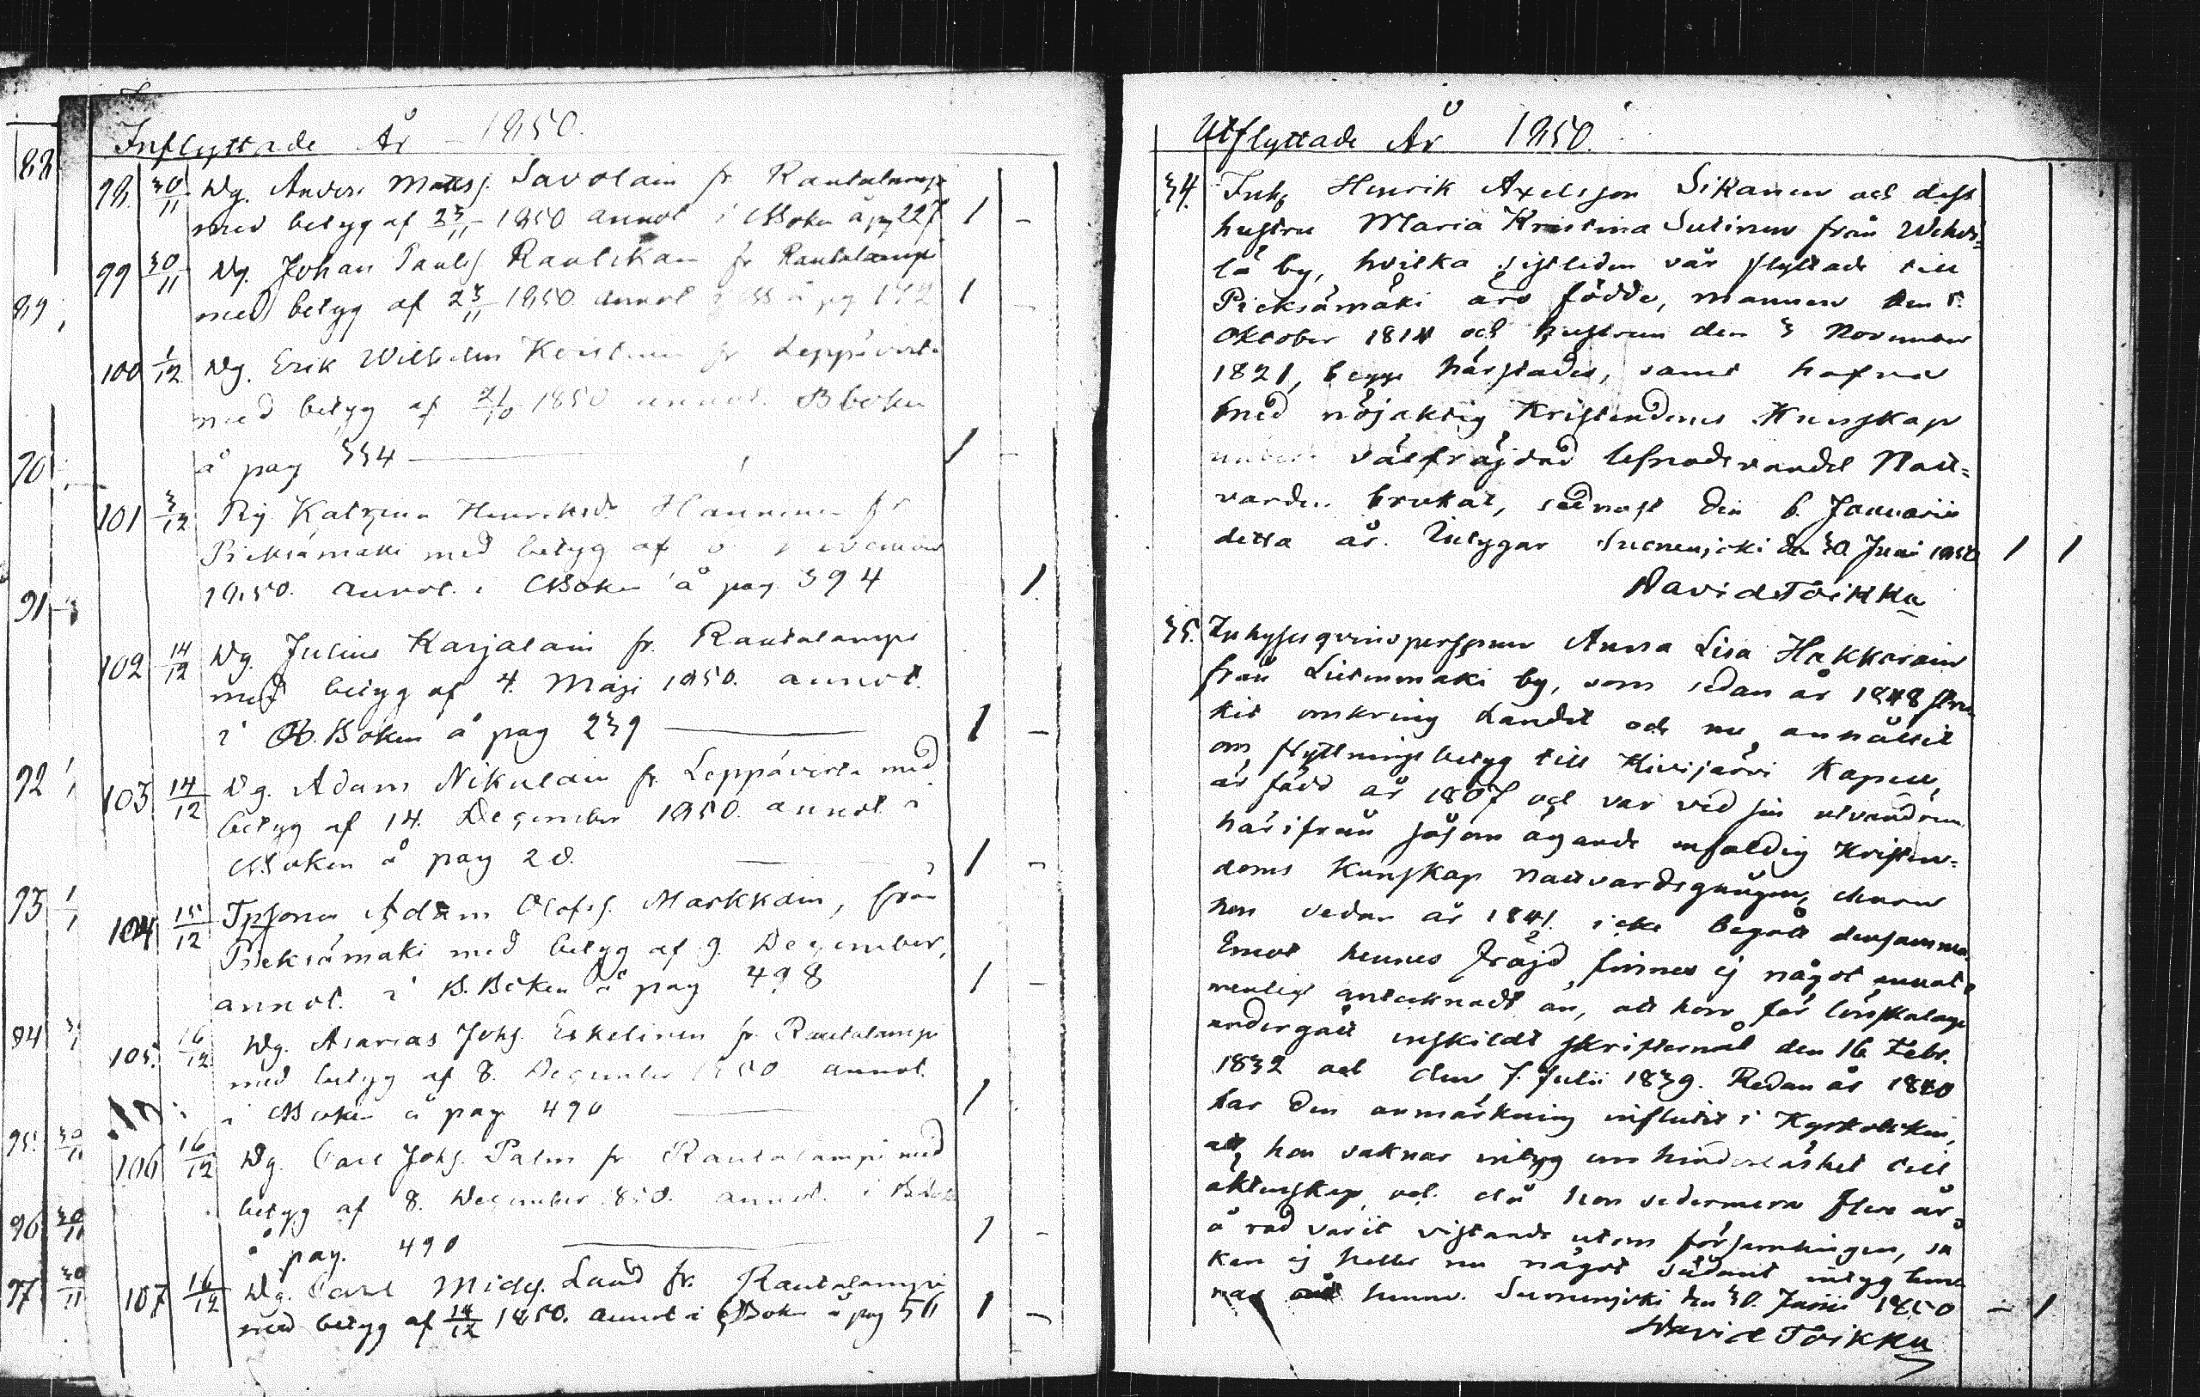 Inflyttade År 1850.
98. 30/11 Dg. Anders Matts. Savolain fr Rautalampi
med betyg af 23/11 1850 annot i Boken å pg 227 1 -
99 30/11 Dg. Johan Paulss. Rautikain fr Rautalampi
med betyg af 23/11 1850 annot å pg 192 1 -
100 1/12 Dg. Erik Wilhelm fr Leppävirta
med betyg af 21/10 1850 annot. Bboken
å pag 334 1 -
101 3/12 Pig. Katrina Henriksd. Hänninen fr
Pieksämäki med betyg af
1850. annot. i Boken å pag 394 1.
102 14/12 Dg. Julius Karjalain fr. Rautalampi
med betyg af 4. Maji 1850. annot.
i Boken å pag 239 1 -
103 14/12 Dg. Adam Nikulain fr Leppävirta med
betyg af 14. December 1850. annot i
Boken å pag 28. 1 -
104 15/12 Adam Olofss. Markkain, från
Pieksämäki med betyg af 9. December,
annot. i B.Boken å pag 498 1 -
105. 16/12 Dg. Asarias Johs. Eskelinen fr Rautalampi
med betyg af 8. December 1850 annot.
i Boken å pag 490 1
106 16/12 Dg. Carl Johs. Palm fr Rautalampi med
betyg af 8. December 850. annot. i
å pag. 490 1 -
107 16/12 Dg. Carl Michs. Lund fr. Rautalampi
med betyg af 14/12 1850. annot i Boken å pag 511 1 -
88
89
90
91
92
93
94
95
96 30/11
97 30/11
Utflyttade År 1850.
34. Inh. Henrik Axelsson Sikanen och dess
hustru Maria Kristina Sutinen från
lä by, hvilka sistliden vår flyttade till
Pieksämäki äro födde, mannen den 5.
Oktober 1814 och hustrun den 3 November
1821, begge härstädes, samt hafva
med nöjaktig Kristendoms Kunskap
välfräjdad lefnadsvandel Natt-
varden brukat, sednast den 6 Januarii
detta år. Intygar Suonenjoki den 30 Juni 1850 1 1
David Toikka
35. Inhyses qvinspersonen Anna Lisa Hakkarain
från Liutunmäki by, som sedan år 1848 stru-
kit omkring Landet och nu anhållit
om flyttningsbetyg till Kivijärvi Kapell,
är född år 1807 och var vid sin utvandrin
härifrån såsom ägande enfaldig Kristen-
doms Kunskap nattvardsgången, churu
hon sedan år 1841. icke begått densamma.
Emot hennes fräjd finnes ej något annat
menligt antecknadt än, att hon för lönskaläge
undergått enskildt skriftermål den 16 Febr.
1832 och den 7. Julii 1839. Redan år 1840
har den anmärkning influtit i Kyrkoboken,
att hon saknar intyg om hinderslöshet till
äktenskap, och då hon sedermera flere år
å rad varit vistande utom församlingen, så
kan ej heller nu något sådant intyg lem-
nas åt henne. Suonenjoki den 30. Junii 1850 - 1
David Toikka